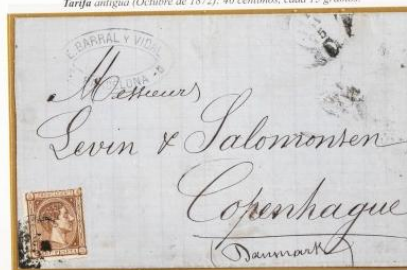 Tarifa antigua (Octubre de 1872): 40 céntimos, cada 15 gramos.
E. BARRAL Y VIDAL
Messieurs
Levin & Salomonsen
Copenhague
(Danmark)